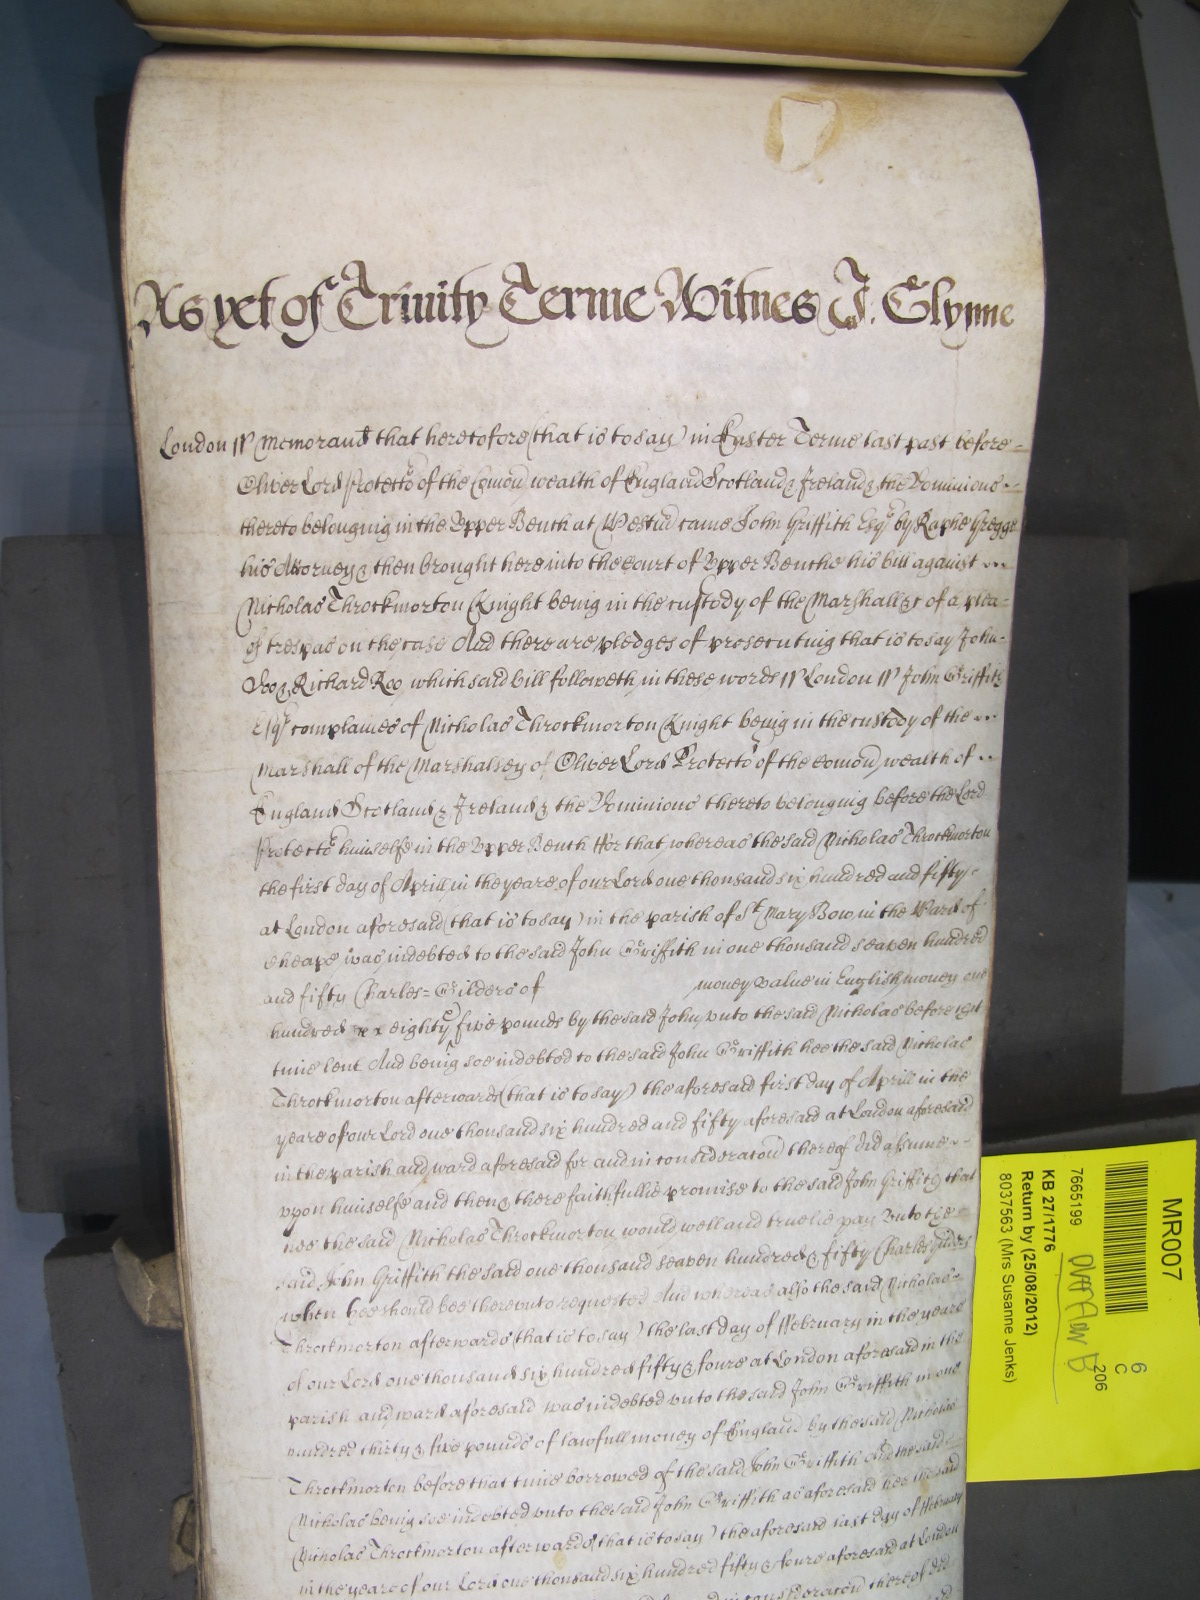 As yet of Trinity Terme Witnes J. Glynne
London ss Memorand that heretofore (that is to say) in Easter Terme last past before
Oliver Lord Protector of the Comon wealth of England Scotland & Ireland & the Dominions
thereto belonging in the Upper Bench at Westm came John Griffith Esqr by Raphe Gregge
his Attorney & then brought here into the court of Upper Benche his bill against
Nicholas Throckmorton Knight being in the custody of the Marshall &c of a plea
of trespas on the case And there are pledges of prosecuting that is to say John
Doo & Richard Roo which said bill followeth in these words ss London ss John Griffith
Esqr complaines of Nicholas Throckmorton Knight being in the custody of the
Marshall of the Marshalsey of Oliver Lord Protector of the comon wealth of
England Scotland & Ireland & the Dominions thereto belonging before the Lord
Protector himselfe in the Upper Bench ffor that whereas the said Nicholas Throckmorton
the first day of Aprill in the yeare of our Lord one thousand six hundred and fifty
at London aforesaid (that is to say) in the parish of St Mary Bow in the Ward of
cheape was indebted to the said John Griffith in one thousand seaven hundred
and fifty Charles=Gilders of money value in English money one
hundred eighty five pounds by the said John unto the said Nicholas before that
time lent And being soe indebted to the said John Griffith hee the said Nicholas
Throckmorton afterwards (that is to say) the aforesaid first day of Aprill in the
yeare of our Lord one thousand six hundred and fifty aforesaid at London aforesaid
in the parish and ward aforesaid for and in consideracon thereof did assume
upon himselfe and then & there faithfullie promise to the said John Griffith that
hee the said Nicholas Throckmorton would well and truelie pay unto the
said John Griffith the said one thousand seaven hundred & fifty Charles guilders
when hee should bee thereunto requested And whereas also the said Nicholas
Throckmorton afterwards (that is to say) the last day of ffebruary in the yeare
of our Lord one thousand six hundred fifty & foure at London aforesaid in the
parish and ward aforesaid was indebted unto the said John Griffith in one
hundred thirty & five pounds of lawfull money of England by the said Nicholas
Throckmorton before that time borrowed of the said John Griffith And the said
Nicholas being soe indebted unto the said John Griffith as aforesaid hee the said
Nicholas Throckmorton afterwards (that is to say) the aforesaid last day of ffebruary
in the yeare of our Lord one thousand six hundred fifty & foure aforesaid at London
in consideracon thereof did
MR007
6
C
206
7665199
KB 27/1776
Return by (25/08/2012)
8037563 (Mrs Susanne Jenks)